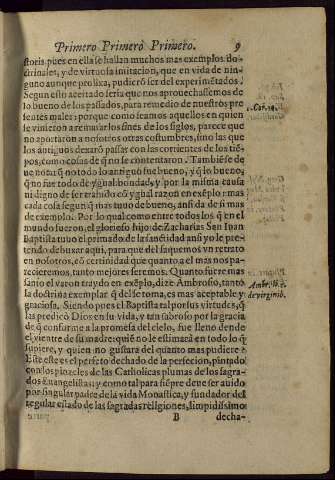 Primero Primerò Primero. 9
storis, pues en ella se hallan muchos mas exemplos do-
ctrinales, y de virtuosa imitacion, que en vida de nin-
guno aunque prolixa, pudierõ ser del experimẽtados.
Segun esto acertado seria que nos aprouechassemos de
lo bueno de los passados, para remedio de nuestros pre
sentes males: porque como seamos aquellos en quien
se vinieron a rematar los fines de los siglos, parece que
no aportaron a nosotros otras costumbres, sino las que
los antiguos dexarõ passar con las corrientes de los tiẽ-
pos, como cosas de q̃ no se contentaron. Tambiẽ se de
ue notar q̃ no todo lo antiguo fue bueno, y q̃ lo bueno,
q̃ no fue todo de ygual bondad, y por la misma causa
ni digno de ser traydo cõ ygual razon en exẽplo: mas
cada cosa segun q̃ mas tuuo de bueno, ansi da de si mas
de exemplo. Por lo qual como entre todos los q̃ en el
mundo fueron, el glorioso hijo de Zacharias San Iuan
Baptista tuuo el primado de la sanctidad ansi yo le pre-
tendo debuxar aqui, para que del saquemos vn retrato
en nosotros, cõ certinidad que quanto a el mas nos pa-
recieremos, tanto mejores seremos. Quanto fuere mas
sancto el varon traydo en exẽplo, dize Ambrosio, tanto
la doctrina exemplar q̃ del se toma, es mas aceptable y
graciosa. Siendo pues el Baptista tal por sus virtudes, q̃
las predicó Dios en su vida, y tan sabroso por la gracia
de q̃ conforme a la promesa del cielo, fue lleno dende
el vientre de su madre: quiẽ no le estimará en todo lo q̃
supiere, y quien no gustara del quanto mas pudiere?
Este, este es el perfeto dechado de la perfeccion, pintado
con los pinzeles de las Catholicas plumas de los sagra-
dos Euangelistas: y como tal para siẽpre deue ser auido
por singular padre de la vida Monastica, y fundador del
regular estado de las sagradas religiones, limpidissimo
B decha-
Ambr. li. 2.
de virginib.